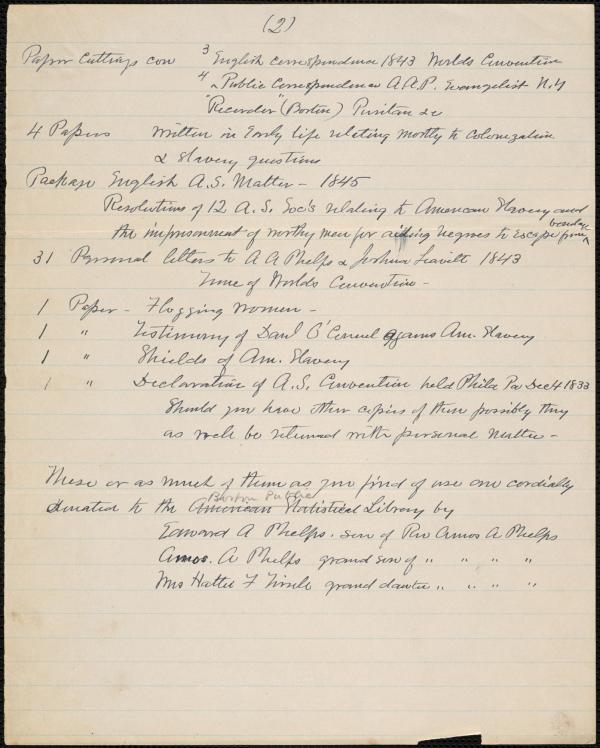 (2)
Paper Cuttings con 3 English correspondence 1843 Worlds Convention
4 " Public Correspondence A.A.P. Evangelist N.Y
"Recorder" (Boston) Puritan &c
4 Papers written in Early life relating mostly to colonization
& Slavery questions
Package English A.S. Matter - 1845
Resolutions of 12 A. S. Soc's relating to American Slavery and
the imprisonment of worthy men for aiding negroes to escape from bondage
31 Personal letters to A A Phelps & Joshua Leavitt 1843
Time of Worlds Convention -
1 Paper - Flogging Women -
1 " Testimony of Danl O'Connel against Am. Slavery
1 " Shields of Am. Slavery
1 " Declaration of A.S. Convention held Phila Pa Dec 4 1833
Should you have other copies of these possibly they
as well be returned with personal matter -
These or as much of them as you find of use are cordially
donated to the American Statistical Library by
Boston Public
Edward A Phelps. son of Rev Amos A Phelps
Amos. A Phelps grand son of " " " "
Mrs Hattie F grand dauter " " " "